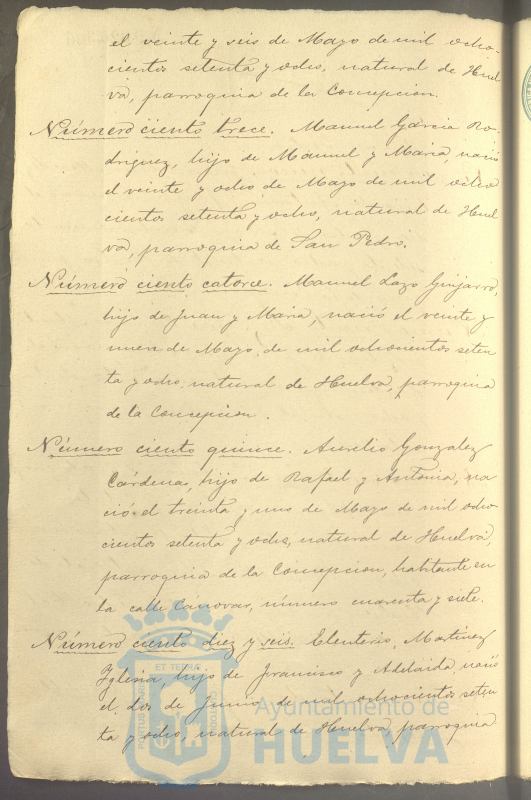 el veinte y seis de Mayo de mil ocho-
cientos setenta y ocho, natural de Huel
va, parroquia de la Concepcion.
Número ciento trece. Manuel Garcia Ro-
driguez, hijo de Manuel y Maria nació
el veinte y ocho de Mayo de mil ocho
cientos setenta y ocho, natural de Huel
va, parroquia de San Pedro.
Número ciento catorce. Manuel Lazo Guijarro,
hijo de Juan y Maria, nació el veinte y
nueve de Mayo de mil ochocientos seten
ta y ocho, natural de Huelva, parroquia
de la Concepcion.
Número ciento quince. Aurelio Gonzalez
Cárdenas, hijo de Rafael y Antonia, na
ció el treinta y uno de Mayo de mil ocho-
cientos setenta y ocho, natural de Huelva,
parroquia de la Concepcion, habitante en
la calle Cánovas, número cuarenta y siete.
Número ciento diez y seis. Eleuterio Martinez
Iglesia, hijo de Francisco y Adelaida, nació
el dos de Junio de mil ochocientos seten
ta y ocho, natural de Huelva, parroquia
ET TERRÆ
PORTUS MARIS
CUSTODIA
Ayuntamiento de
HUELVA